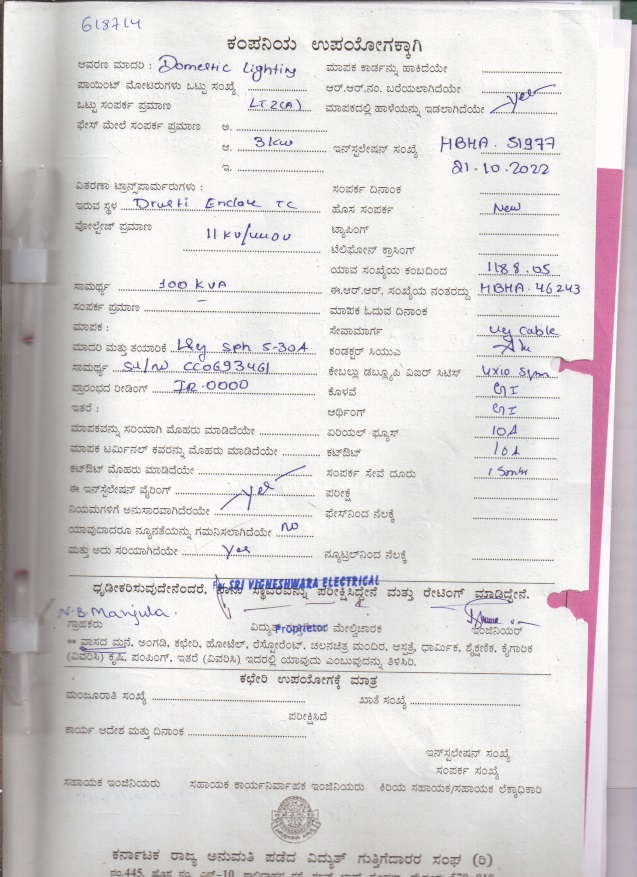 618714
ಕಂಪನಿಯ ಉಪಯೋಗಕ್ಕಾಗಿ
ಆವರಣ ಮಾದರಿ : Domestic Lighting
ಮಾಪಕ ಕಾರ್ಡನ್ನು ಹಾಕಿದೆಯೇ
ಪಾಯಿಂಟ್ ಮೋಟರುಗಳು ಒಟ್ಟು ಸಂಖ್ಯೆ
ಆರ್.ಆರ್.ನಂ. ಬರೆಯಲಾಗಿದೆಯೇ
ಒಟ್ಟು ಸಂಪರ್ಕ ಪ್ರಮಾಣ LT2(A)
ಮಾಪಕದಲ್ಲಿ ಹಾಳೆಯನ್ನು ಇಡಲಾಗಿದೆಯೇ yes
ಫೇಸ್ ಮೇಲೆ ಸಂಪರ್ಕ ಪ್ರಮಾಣ ಆ.
ಆ. 3kw ಇನ್ಸ್‌ಟಲೇಷನ್ ಸಂಖ್ಯೆ MBHA. 51977
ಇ. 21.10.2022
ವಿತರಣಾ ಟ್ರಾನ್ಸ್‌ಪಾರ್ಮರುಗಳು :
ಸಂಪರ್ಕ ದಿನಾಂಕ
ಇರುವ ಸ್ಥಳ Drusti Enclave TC
ಹೊಸ ಸಂಪರ್ಕ New
ವೋಲ್ಟೇಜ್ ಪ್ರಮಾಣ 11 KV/
ಟ್ಯಾಪಿಂಗ್
ಟೆಲಿಫೋನ್ ಕ್ರಾಸಿಂಗ್
ಯಾವ ಸಂಖ್ಯೆಯ ಕಂಬದಿಂದ 1188.05
ಸಾಮರ್ಥ್ಯ 100 KVA
ಈ.ಆರ್.ಆರ್. ಸಂಖ್ಯೆಯ ನಂತರದ್ದು MBHA. 46243
ಸಂಪರ್ಕ ಪ್ರಮಾಣ –
ಮಾಪಕ ಓದುವ ದಿನಾಂಕ
ಮಾಪಕ :
ಸೇವಾಮಾರ್ಗ ug cable
ಮಾದರಿ ಮತ್ತು ತಯಾರಿಕೆ L&G Sph 5-30A
ಕಂಡಕ್ಟರ್ ಸಿಯುಎ
ಸಾಮರ್ಥ್ಯ Sl/no CC0693461
ಕೇಬಲ್ಲು ಡಬ್ಲ್ಯೂಪಿ ಎಐರ್ ಸಿಟಿಸ್ 4x10 Sqm
ಪ್ರಾರಂಭದ ರೀಡಿಂಗ್ IR-0000
ಕೊಳವೆ GI
ಇತರೆ :
ಆರ್ಥಿಂಗ್ GI
ಮಾಪಕವನ್ನು ಸರಿಯಾಗಿ ಮೊಹರು ಮಾಡಿದೆಯೇ
ಏರಿಯಲ್ ಫ್ಯೂಸ್ 10A
ಮಾಪಕ ಟರ್ಮಿನಲ್ ಕವರನ್ನು ಮೊಹರು ಮಾಡಿದೆಯೇ
ಕಟ್‌ಔಟ್ 10A
ಕಟ್‌ಔಟ್ ಮೊಹರು ಮಾಡಿದೆಯೇ
ಸಂಪರ್ಕ ಸೇವೆ ದೂರು 15mtr
ಈ ಇನ್ಸ್‌ಟಲೇಷನ್ ವೈರಿಂಗ್
ಪರೀಕ್ಷೆ
ನಿಯಮಗಳಿಗೆ ಅನುಸಾರವಾಗಿದೆರೆಯೇ yes
ಫೇಸ್‌ನಿಂದ ನೆಲಕ್ಕೆ
ಯಾವುದಾದರೂ ನ್ಯೂನತೆಯನ್ನು ಗಮನಿಸಲಾಗಿದೆಯೇ NO
ಮತ್ತು ಅದು ಸರಿಯಾಗಿದೆಯೇ yes
ನ್ಯೂಟ್ರಲ್‌ನಿಂದ ನೆಲಕ್ಕೆ
For SRI VIGNESHWARA ELECTRICAL
ಧೃಡೀಕರಿಸುವುದೇನೆಂದರೆ, ನಾನು ಸ್ಥಾವರವನ್ನು ಪರೀಕ್ಷಿಸಿದ್ದೇನೆ ಮತ್ತು ರೇಟಿಂಗ್ ಮಾಡಿದ್ದೇನೆ.
N.B. Manjula
ಗ್ರಾಹಕರು
ಮೇಲ್ವಿಚಾರಕ
ಇಂಜಿನಿಯರ್
Proprietor
** ವಾಸದ ಮನೆ, ಅಂಗಡಿ, ಕಛೇರಿ, ಹೋಟೆಲ್, ರೆಸ್ಟೋರೆಂಟ್, ಚಲನಚಿತ್ರ ಮಂದಿರ, ಆಸ್ಪತ್ರೆ, ಧಾರ್ಮಿಕ, ಶೈಕ್ಷಣಿಕ, ಕೈಗಾರಿಕ
(ವಿವರಿಸಿ) ಕೃಷಿ, ಪಂಪಿಂಗ್, ಇತರೆ (ವಿವರಿಸಿ) ಇದರಲ್ಲಿ ಯಾವುದು ಎಂಬುವುದನ್ನು ತಿಳಿಸಿರಿ.
ಕಛೇರಿ ಉಪಯೋಗಕ್ಕೆ ಮಾತ್ರ
ಮಂಜೂರಾತಿ ಸಂಖ್ಯೆ
ಖಾತೆ ಸಂಖ್ಯೆ
ಪರೀಕ್ಷಿಸಿದೆ
ಕಾರ್ಯ ಆದೇಶ ಮತ್ತು ದಿನಾಂಕ
ಇನ್‌ಸ್ಟಲೇಷನ್ ಸಂಖ್ಯೆ
ಸಂಪರ್ಕ ಸಂಖ್ಯೆ
ಸಹಾಯಕ ಇಂಜಿನಿಯರು ಸಹಾಯಕ ಕಾರ್ಯನಿರ್ವಾಹಕ ಇಂಜಿನಿಯರು ಕಿರಿಯ ಸಹಾಯಕ/ಸಹಾಯಕ ಲೆಕ್ಕಾಧಿಕಾರಿ
ಕರ್ನಾಟಕ ರಾಜ್ಯ ಅನುಮತಿ ಪಡೆದ ವಿದ್ಯುತ್ ಗುತ್ತಿಗೆದಾರರ ಸಂಘ (ರಿ)